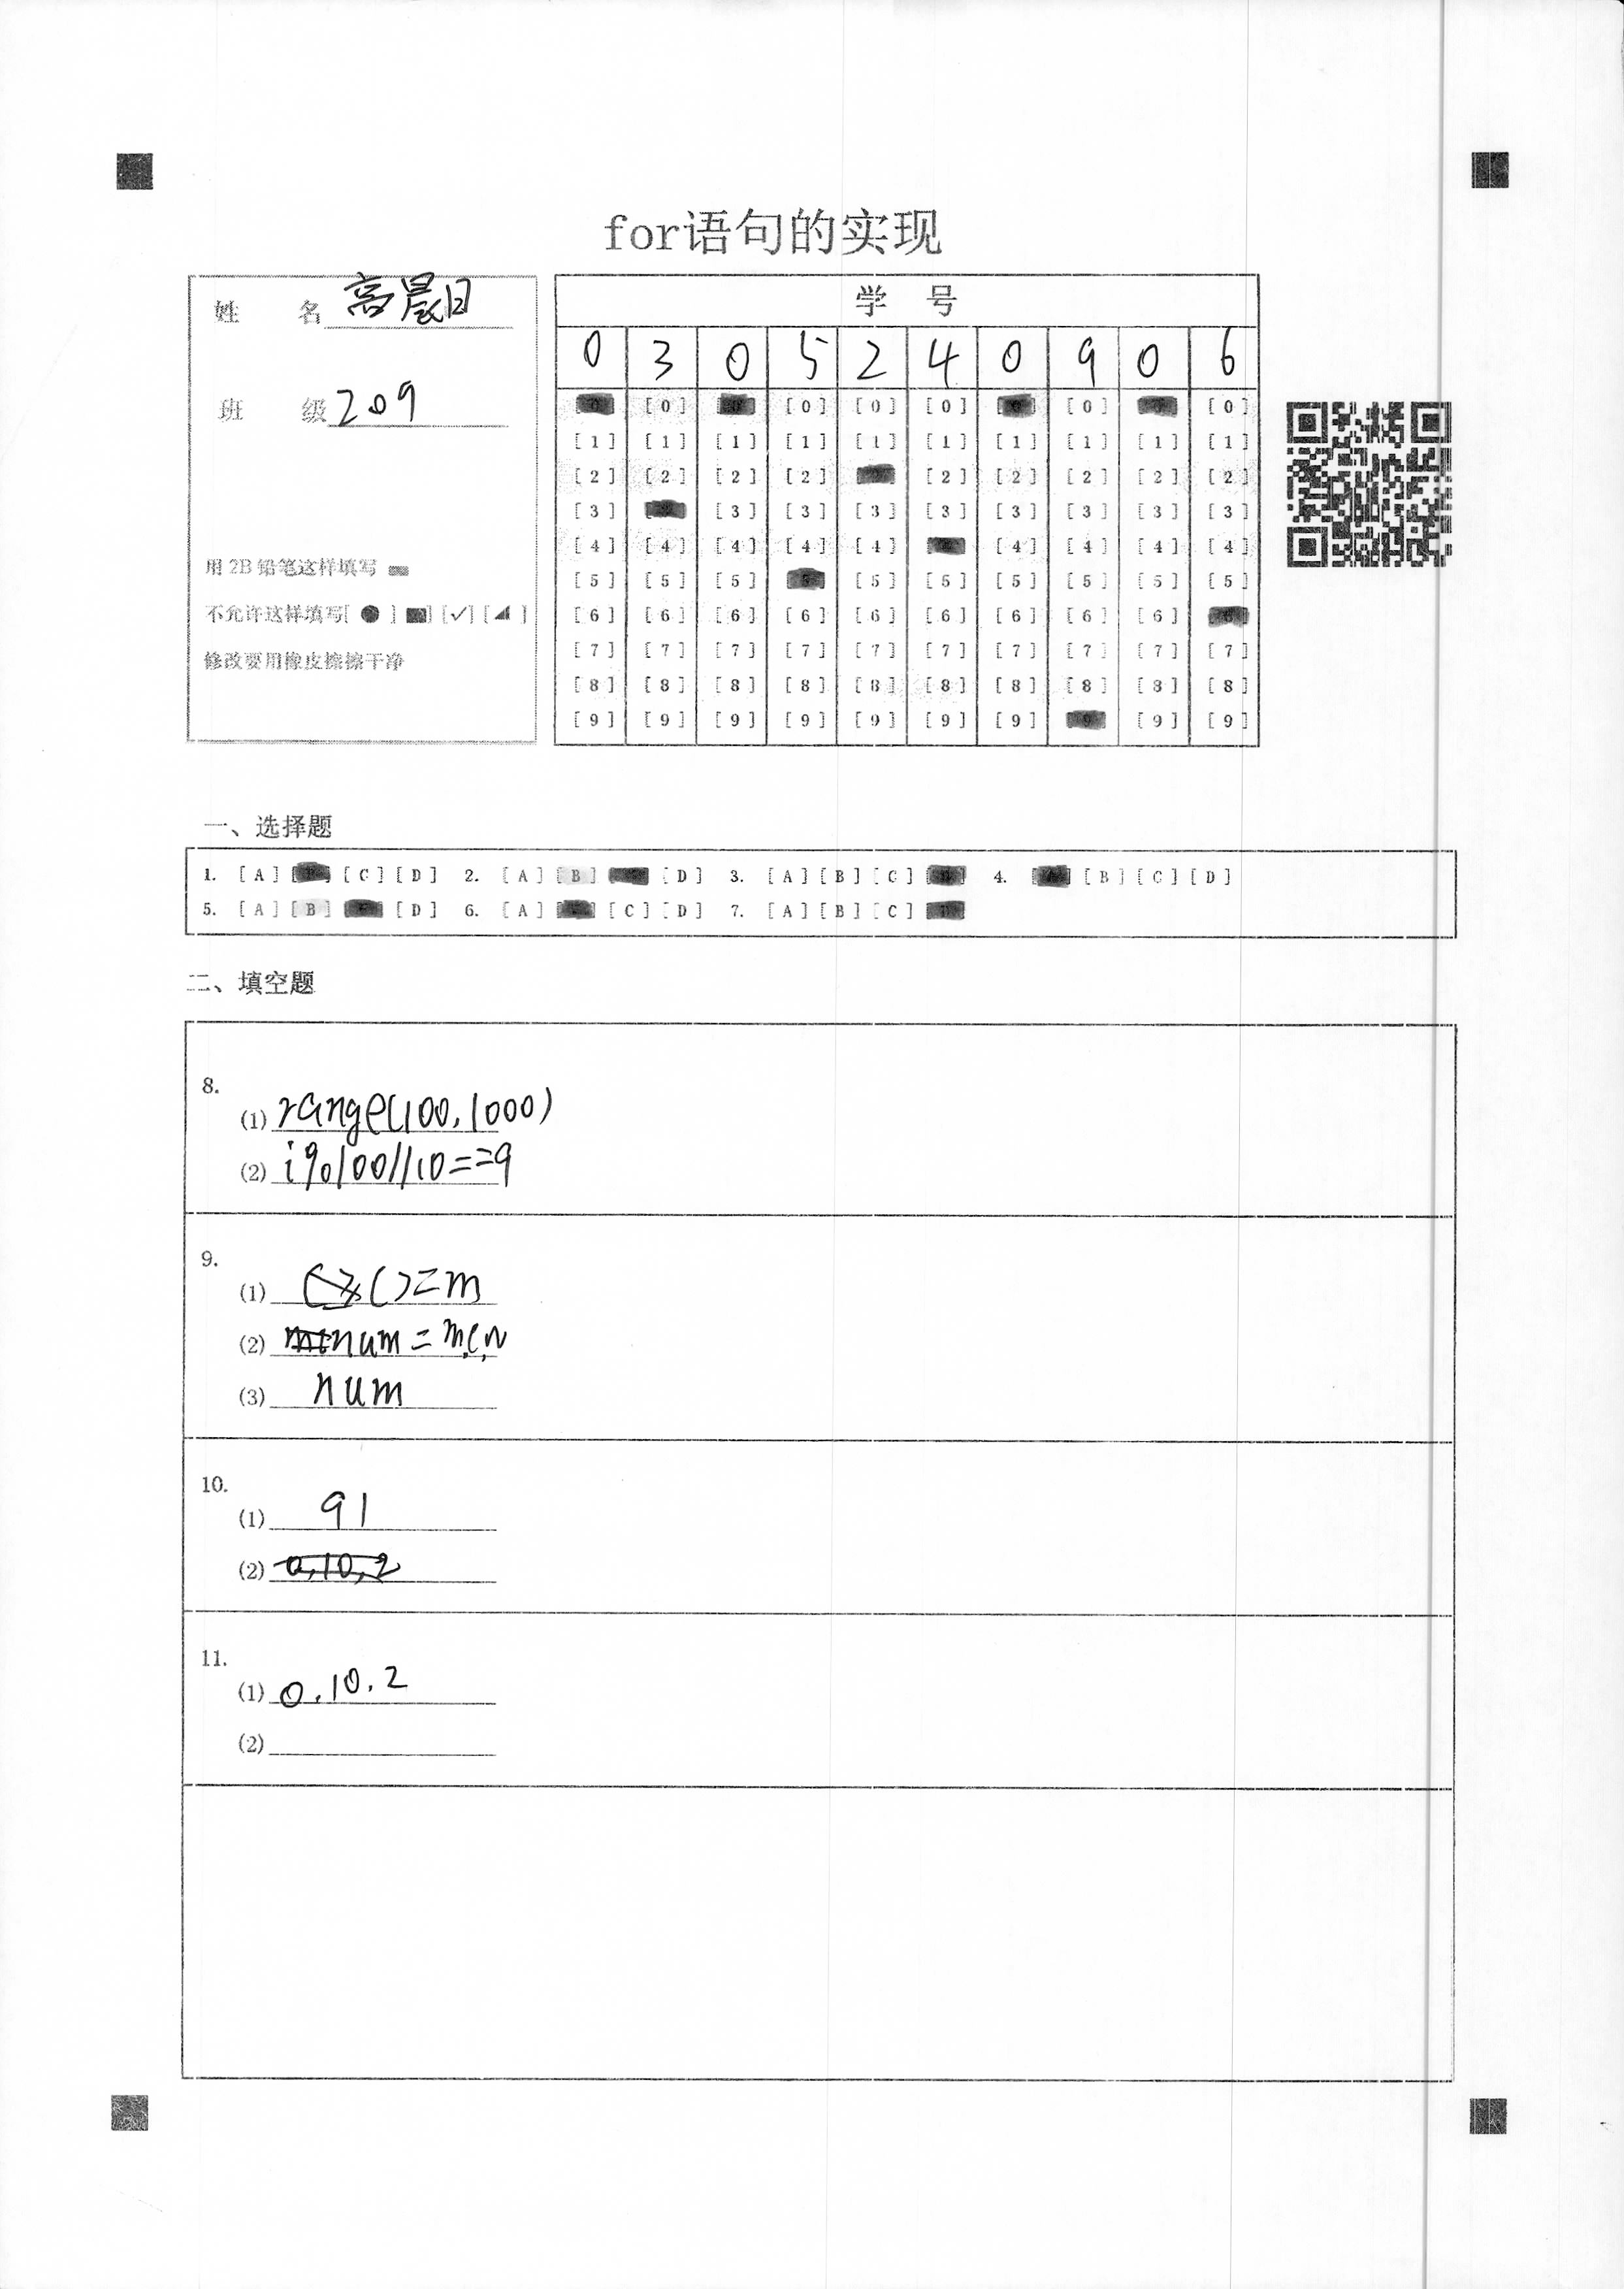 for语句的实现
姓 名 高晨日
班 级 209
用2B铅笔这样填写
不允许这样填写[ ● ] [■] [✓] [◢ ]
修改要用橡皮擦擦干净
学 号
0 3 0 5 2 4 0 9 0 6
[0] [0] [0] [0] [0] [0]
[1] [1] [1] [1] [1] [1] [1] [1] [1] [1]
[2] [2] [2] [2] [2] [2] [2] [2] [2]
[3] [3] [3] [3] [3] [3] [3] [3] [3]
[4] [4] [4] [4] [4] [4] [4] [4] [4]
[5] [5] [5] [5] [5] [5] [5] [5] [5]
[6] [6] [6] [6] [6] [6] [6] [6] [6]
[7] [7] [7] [7] [7] [7] [7] [7] [7] [7]
[8] [8] [8] [8] [8] [8] [8] [8] [8] [8]
[9] [9] [9] [9] [9] [9] [9] [9] [9]
一、选择题
1. [A] [C] [D] 2. [A] [B] [D] 3. [A] [B] [C] 4. [B] [C] [D]
5. [A] [B] [D] 6. [A] [C] [D] 7. [A] [B] [C]
二、填空题
8.
(1) range(100,1000)
(2) i%100//10==9
9.
(1) =m
(2) num=m,c,n
(3) num
10.
(1) 91
(2) 0,10,2
11.
(1) 0,10,2
(2)